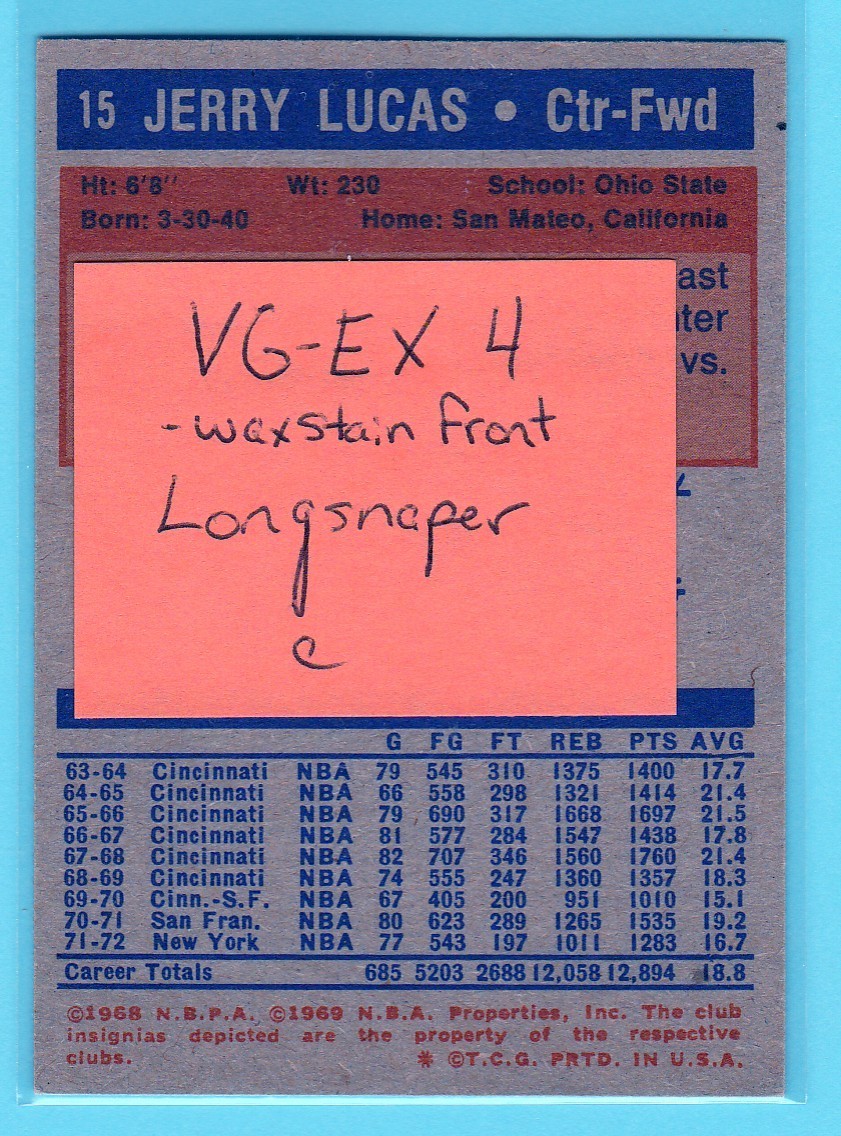 15 JERRY LUCAS • Ctr-Fwd
Ht: 6'8" Wt: 230 School: Ohio State
Born: 3-30-40 Home: San Mateo, California
ast
nter
vs.
VG-EX 4
-waxstain front
Longsnaper
c
G FG FT REB PTS AVG
63-64 Cincinnati NBA 79 545 310 1375 1400 17.7
64-65 Cincinnati NBA 66 558 298 1321 1414 21.4
65-66 Cincinnati NBA 79 690 317 1668 1697 21.5
66-67 Cincinnati NBA 81 577 284 1547 1438 17.8
67-68 Cincinnati NBA 82 707 346 1560 1760 21.4
68-69 Cincinnati NBA 74 555 247 1360 1357 18.3
69-70 Cinn.-S.F. NBA 67 405 200 951 1010 15.1
70-71 San Fran. NBA 80 623 289 1265 1535 19.2
71-72 New York NBA 77 543 197 1011 1283 16.7
Career Totals 685 5203 2688 12,058 12,894 18.8
©1968 N.B.P.A. ©1969 N.B.A. Properties, Inc. The club
insignias depicted are the property of the respective
clubs. * ©T.C.G. PRTD. IN U.S.A.